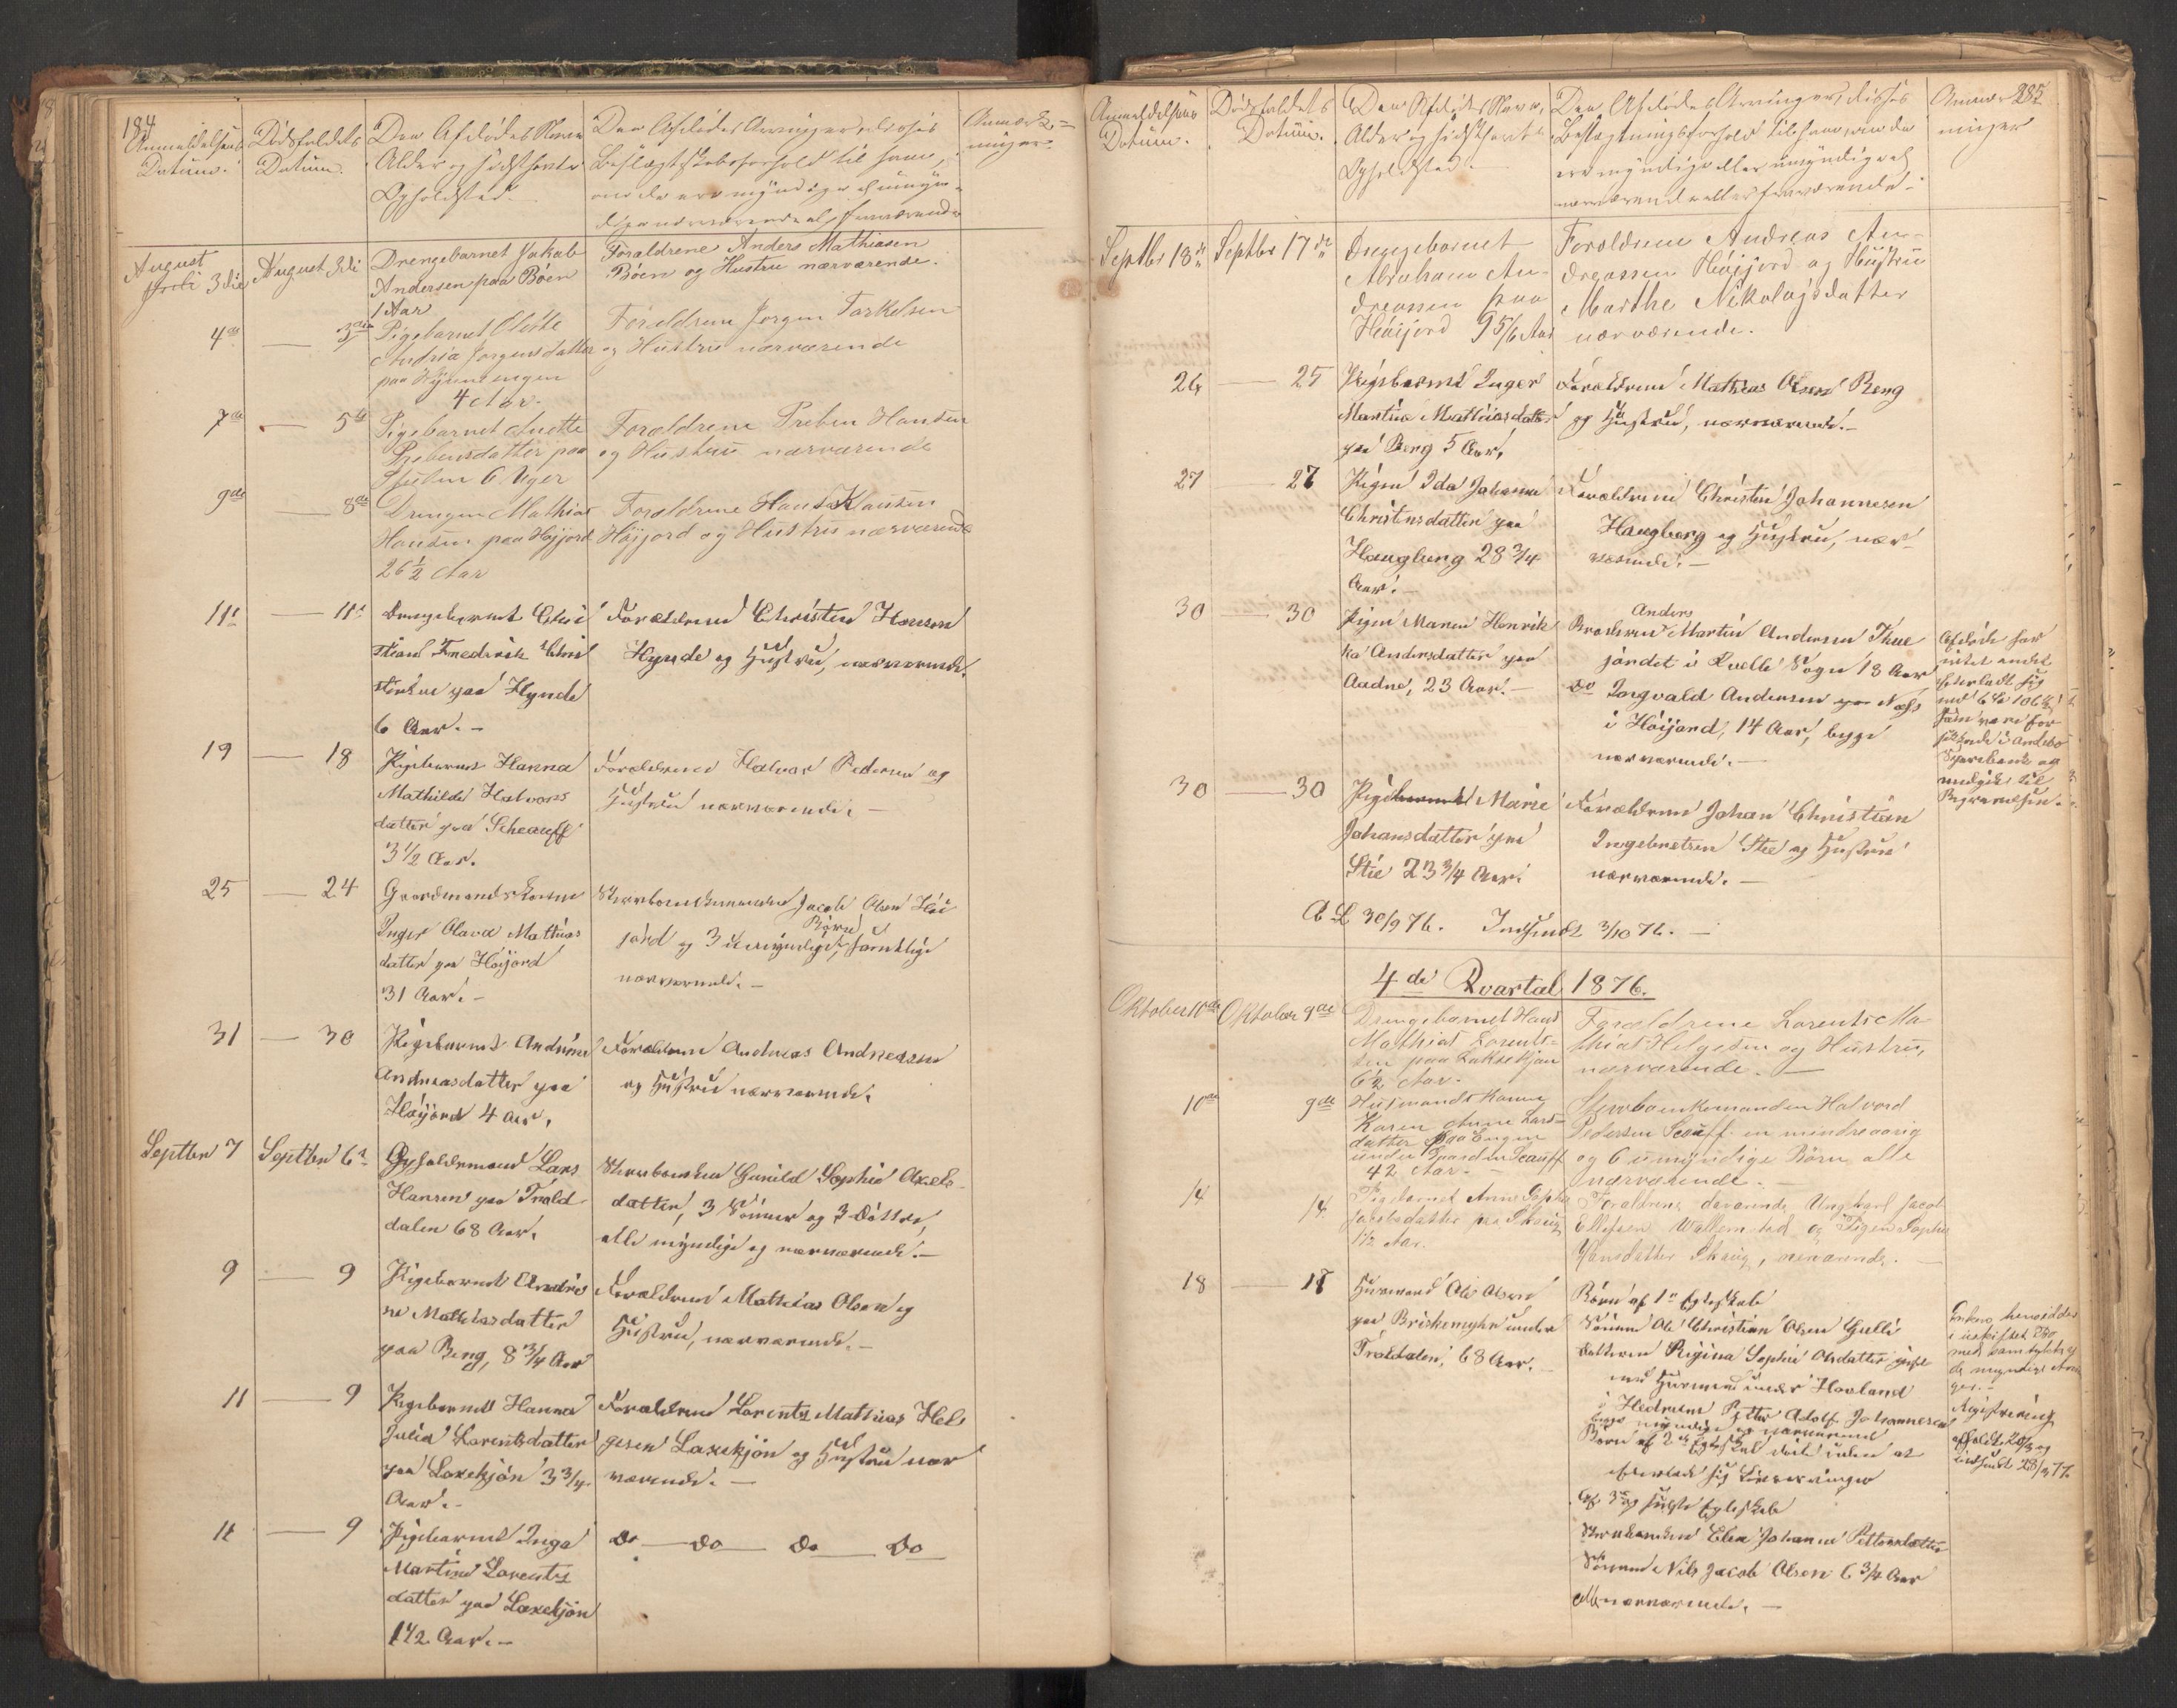 184
Anmeldelsens
Datum.
Dødsfaldets
Datum.
Den Afdødes Navn
Alder og sidsthavte
Opholdsted.
Den Afdødes Arvinger, disses
Beslægtskabsforhold til ham,
om de ere myndige el umyn-
dige nærværende el fraværende
Anmærk-
ninger.
August
3die
August 3di
Drengebarnet Jakob
Andersen paa Bøen
1 Aar
Forældrene Anders Mathiasen
Bøen og Hustru nærværende.
4de
3die
Pigebarnet Oleste
Andria Jørgensdatter
paa
4 Aar.
Forældrene Jørgen Torkelsen
og Hustru nærværende
7de
5te
Pigebarnet Anette
Prebensdatter paa
6 Uger
Forældrene Preben Hansen
og Hustru nærværende
9de
8de
Drengen Mathias
Hansen paa Høijord
26 1/2 Aar
Forældrene Hans Hansen
Høijord og Hustru nærværende
11te
11te
Drengebarnet Chri
stian Fredrik Chri
stensen paa Hynde
6 Aar.-
Forældrene Christen Hansen
Hynde og Hustru, nærværende.
19
18
Pigebarnet Hanna
Mathilde Halvors
datter paa Scheauff
3 1/2 Aar.
Forældrene Halvor Pedersen og
Hustru nærværende.-
25
24
Gaardmandskone
Inger Olava Mathias
datter paa Høijord
31 Aar.-
Sterboenkemanden Jacob Olsen Høi
Børn
jord og 3 umyndige, samtlige
nærværende.-
31
30
Pigebarnet Andrine
Andreasdatter paa
Høijord 4 Aar.
Forældrene Andreas Andreasen
og Hustru nærværende.
Septber 7
Septber 6te
Opholdsmand Lars
Hansen paa Trold
dalen 68 Aar.
Sterboenken Gunild Sophie Axels
datter, 3 Sønner og 3 Døttre,
alle myndige og nærværende.-
9
9
Pigebarnet Andri
ne Mathiasdatter
paa Berg, 8 3/4 Aar
Forældrene Mathias Olsen og
Hustru, nærværende.-
11
9
Pigebarnet Hanna
Julia Lorentsdatter
paa Laxekjøn 3 3/4
Aar.-
Forældrene Lorents Mathias Hel
gesen Laxekjøn og Hustru nær
værende.-
11
9
Pigebarnet Inga
Martine Lorents
datter paa Laxekjøn
1 1/2 Aar.-
Do - Do - Do - Do
Anmeldelsens
Datum.
Dødsfaldets
Datum.
Den Afdødes Navn,
Alder og sidsthavte
Opholdsted.
Den Afdødes Arvinger, disses
Beslægtningsforhold til ham, om de
ere myndige eller umyndige el
nærværende eller fraværende.
Anmærk
ninger
285
Septber 18de
Septber 17de
Drengebarnet
Abraham An-
dreassen paa
Høijord 9 5/6 Aar
Forældrene Andreas An-
dreassen Høijord og Hustru
Marthe Nikolaysdatter
nærværende.
26
25
Pigebarnet Inger
Martia Mathiasdatter
paa Berg 5 Aar.
Forældrene Mathias Olsen Berg
og Hustru, nærværende.-
27
27
Pigen Ida Johanne
Christensdatter paa
Haugberg 28 3/4
Aar.-
Forældrene Christen Johannesen
Haugberg og Hustru, nær-
værende.-
30
30
Pigen Maren Henrik
ka Andersdatter paa
Aadne, 23 Aar.-
Anders
Brødrene Martin Andersen
jordet i Sogn 18 Aar
Do Torgvald Andersen paa
i Høijord, 14 Aar, begge
nærværende.-
Afdøde har
intet andet
efterladt sig
end
som var for
i Andebo
Sparebank og
medgik til
Begravelsen.
30
30
Pigebarnet Marie
Johansdatter paa
Stie 23 3/4 Aar.
Forældrene Johan Christian
Ingebretsen Stie og Hustru
nærværende.-
A L 30/9 76. Indsendt 3/10 76.-
4de Qvartal 1876.
Oktober 10de
Oktober 9de
Drengebarnet Hans
Mathias Lorents-
sen paa Laksekjøn
6 1/2 Aar.
Forældrene Lorents Ma-
thias Helgesen og Hustru,
nærværende.-
10de
9de
Husmands Kone
Karen Anne Lars-
datter paa Engen
under Gaarden Scauff
42 Aar.-
Sterboenkemanden Halvord
Pedersen Scauff en mindreaarig
og 6 umyndige Børn alle
nærværende.-
14
14
Pigebarnet Anne Sophie
Jacobsdatter paa Skoug
1 1/2 Aar.
Forældrene, Ungkarl Jacob
Ellefsen Wallemstad og Pigen Sophie
Hansdatter Skoug, nærværende.-
18
17
Husmand Ole Olsen
paa Briskemyhr under
Trolddalen, 68 Aar.-
Børn af 1ste Egteskab
Sønnen Ole Christian Olsen Gulli
Datteren Regina Sophie Olsdatter gift
med Husmand under Hovland
i Hedrum Petter Adolf Johannesen
begge myndige og nærværende
Børn af 2det Egteskab døde uden at
efterlade sig Livsarvinger
Af 3die og sidste Egteskab
Sterboenken Elen Johanne Pettersdatter
Sønnen Nils Jacob Olsen 6 3/4 Aar
alle nærværende.-
Enken hensidder
i uskiftet Bo
med Samtykke af
de myndige Arvin
ger.-
Registrering
afholdt og
indsendt